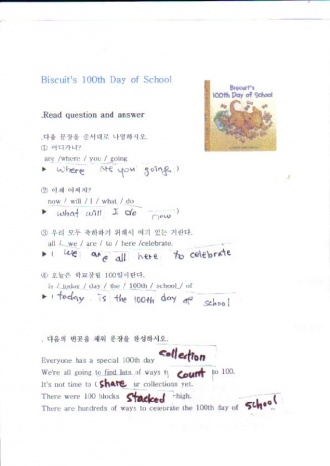 Biscuit's 100th Day of School
Biscuit's
100th Day of School
.Read question and answer
.다음 문장을 순서대로 나열하시오.
① 어디가니?
are /where / you / going
▶ where are you going )
② 이제 어쩌지?
now / will / I / what / do
▶ what will I do now )
③ 우리 모두 축하하기 위해서 여기 있는 거란다.
all / we / are / to / here /celebrate.
▶ ( we are all here to celebrate
④ 오늘은 학교장될 100일이란다.
is / today / day / the / 100th / school / of
▶ ( today is the 100th day of school
. 다음의 빈곳을 채워 문장을 완성하시오.
Everyone has a special 100th day collection
We're all going to find lots of ways to count to 100.
It's not time to ( share ur collections yet.
There were 100 blocks stacked -high.
There are hundreds of ways to celebrate the 100th day of school